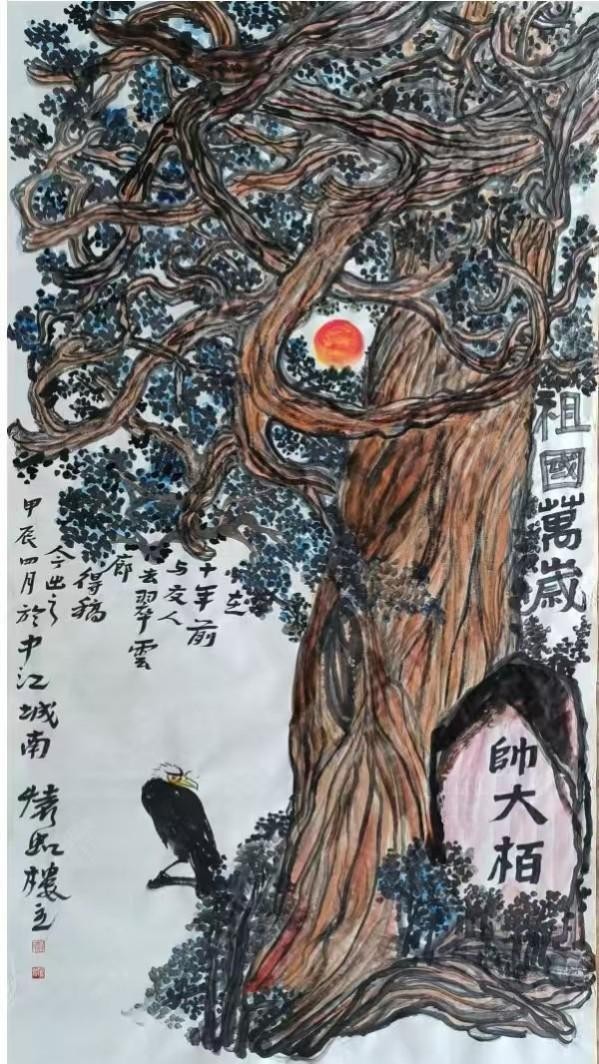 祖國萬歲
帥大柏
在
十年前
与友人
去翠雲
廊
得稿
今出之
甲辰四月於中江城南 虹樓主